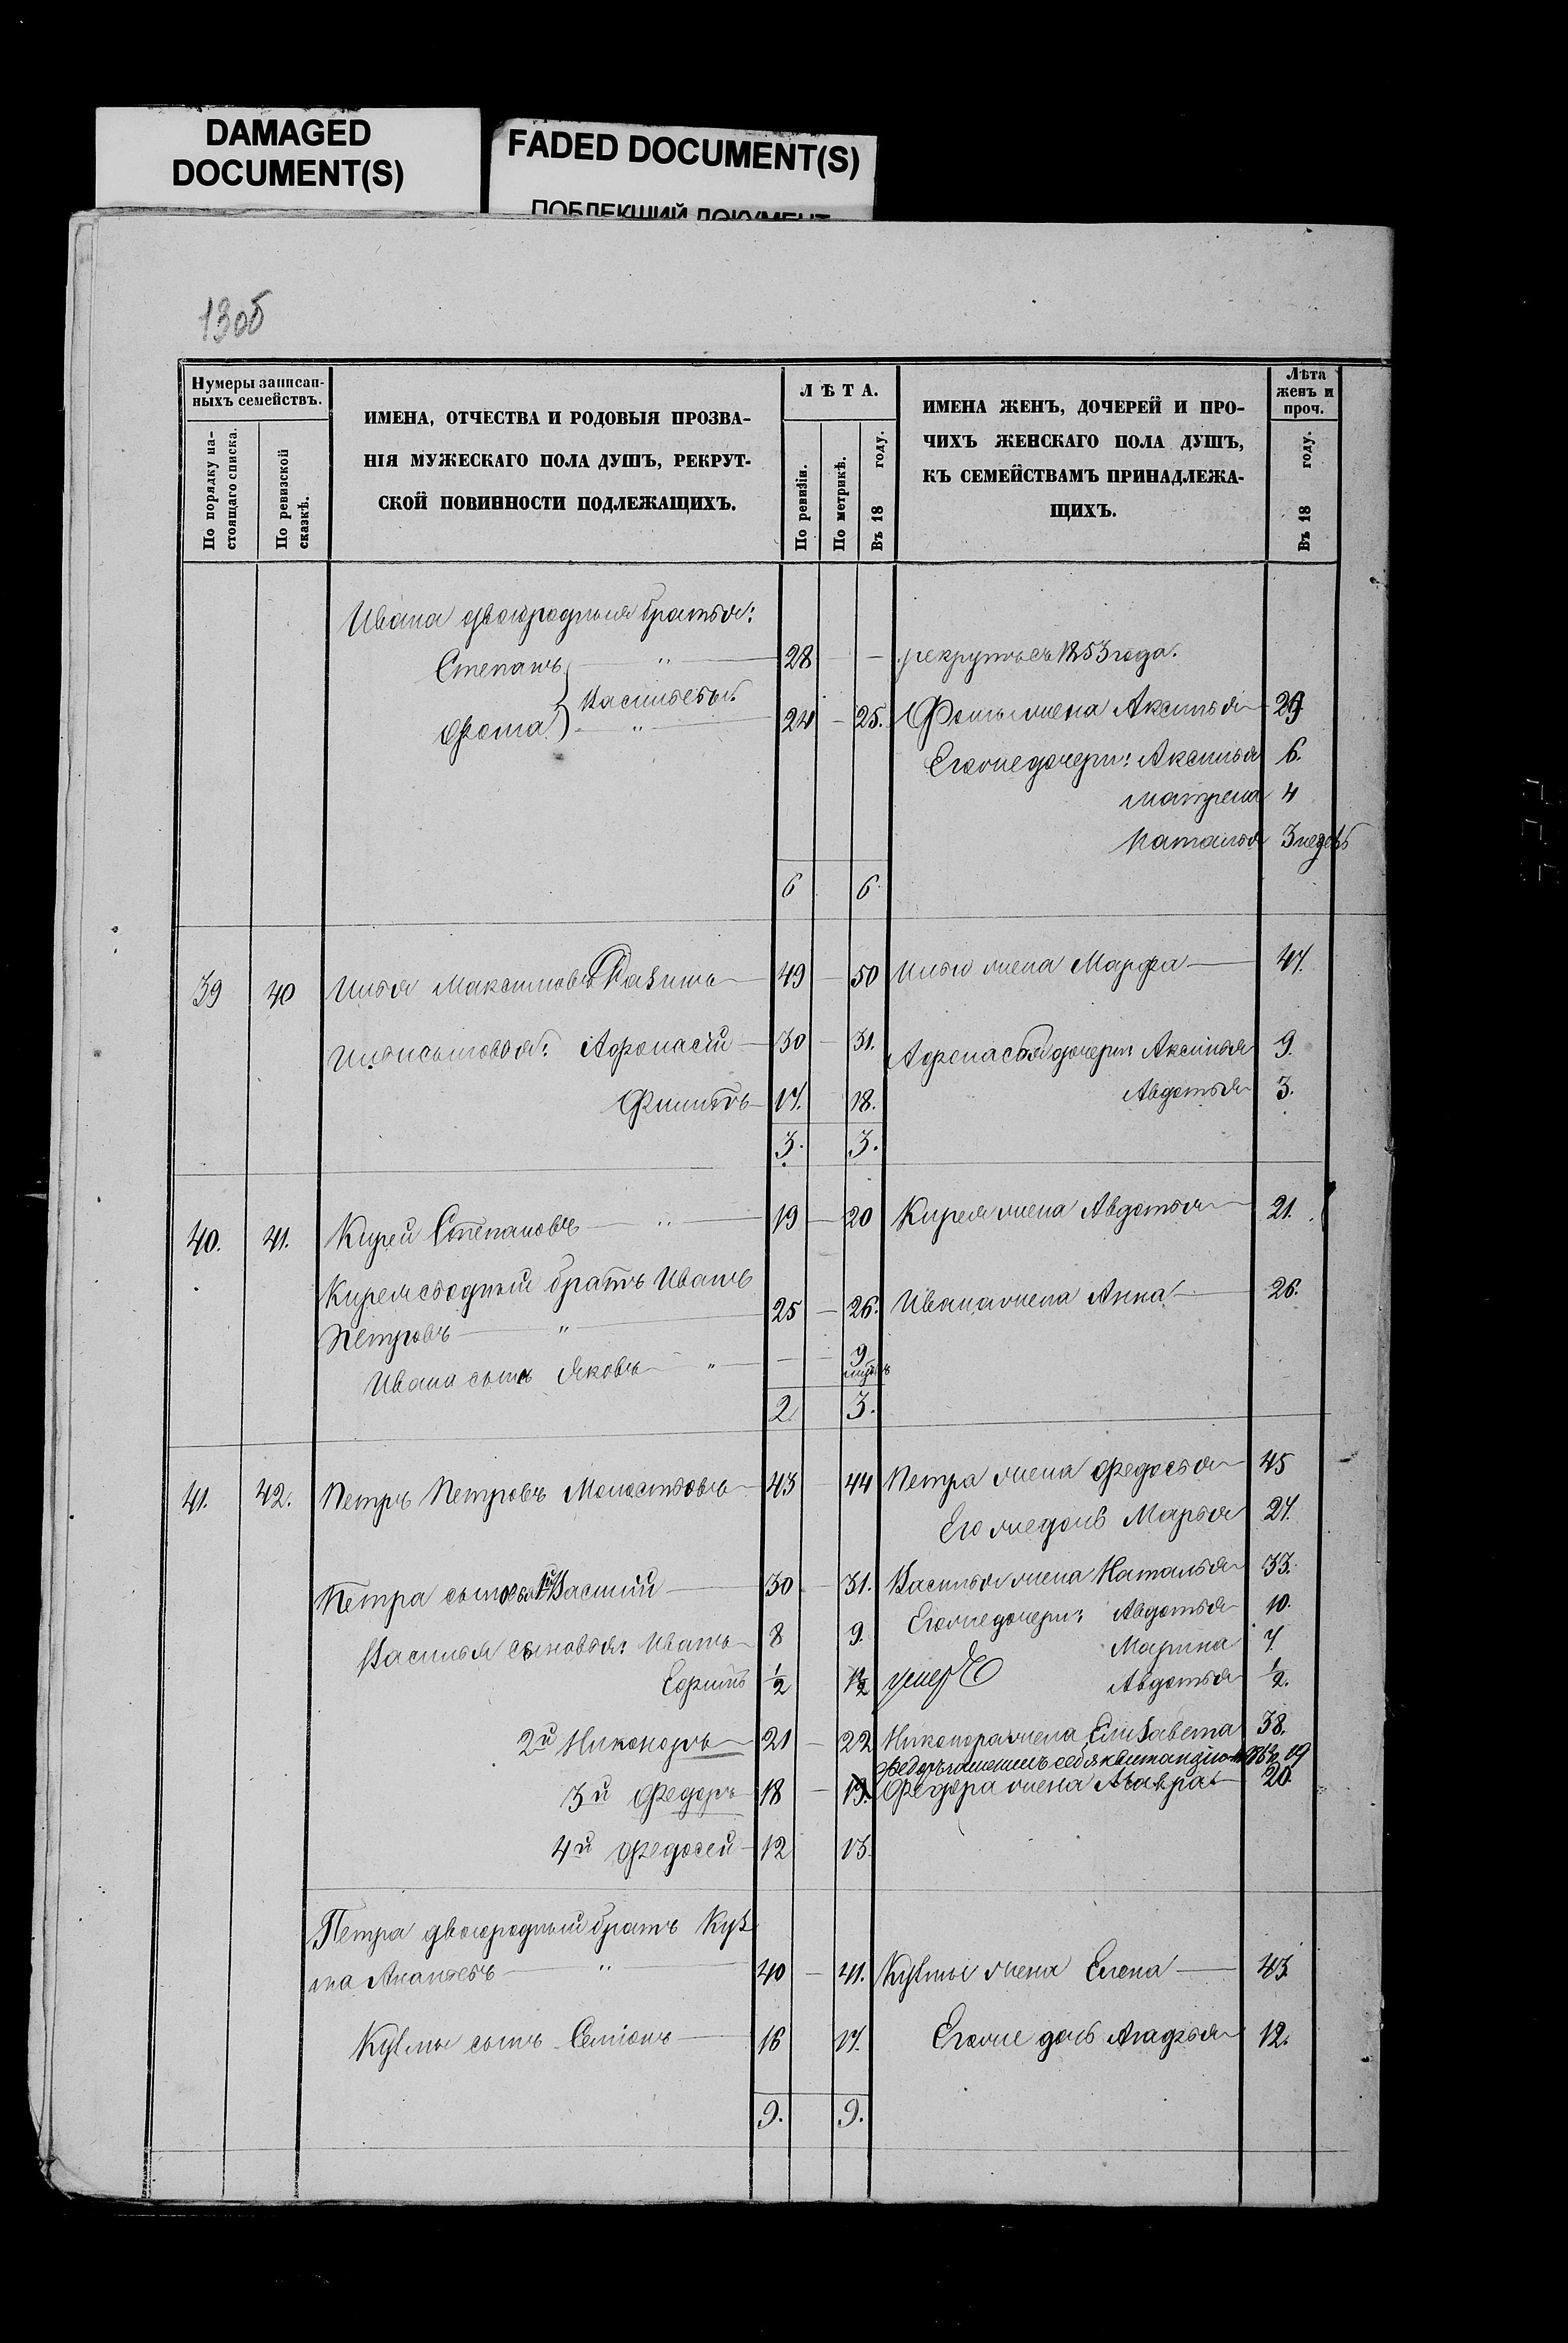 DAMAGED
DOCUMENT(S)
FADED DOCUMENT(S)
ПОБЛЕКШИЙ ДОКУМЕНТ
130б
Нумеры записан-
ныхъ семействъ.
По порядку на-
стоящаго списка.
По ревизской
сказкѣ.
ИМЕНА, ОТЧЕСТВА И РОДОВЫЯ ПРОЗВА-
НІЯ МУЖЕСКАГО ПОЛА ДУШЪ, РЕКРУТ-
СКОЙ ПОВИННОСТИ ПОДЛЕЖАЩИХЪ.
ЛѢТА.
По ревизіи.
По метрикѣ.
Въ 18 году.
ИМЕНА ЖЕНЪ, ДОЧЕРЕЙ И ПРО-
ЧИХЪ ЖЕНСКАГО ПОЛА ДУШЪ,
КЪ СЕМЕЙСТВАМЪ ПРИНАДЛЕЖА-
ЩИХЪ.
Лѣта
женъ и
проч.
Въ 18 году.
Ивана двоюродныя братья:
Степанъ " 28 — рекрутъ съ 1853 года.
Васильевы
Фома " 24 — 25. Фомы жена Аксинья 29
Его же дочери: Аксинья 6.
Матрена 4
Наталья 3 недѣль
6 6.
39 40 Илья Максимовъ 49 — 50 Ильи жена Марфа 47.
Ильи сыновья: Афонасій 30 — 31. Афонасья дочери: Аксинья 9.
Филипъ 17. 18. Авдотья 3.
3. 3.
40. 41. Кирей Степановъ " 19 — 20 Кирея жена Авдотья 21.
Кирея сводный братъ Иванъ
Петровъ " 25 — 26. Ивана жена Анна 26.
Ивана сынъ Яковъ " — — 9
2 3.
41. 42. Петръ Петровъ 43 44 Петра жена Федосья 45
Его же дочь Марья 27.
Петра сыновья 1й Василій 30 — 31. Василья жена Наталья 33.
Его же дочери: Авдотья 10.
Василья сыновья: Иванъ 8 9. Марина 7.
Ефимъ 1/2 1 1/2 умеръ Авдотья 1/2.
2й Никоноръ 21 — 22 Никонора жена Елизавета 38.
Федоръ себя квитанціею
3й Федоръ 18 — 19. Федора жена 20.
4й Федосей 12 13.
Петра двоюродный братъ Куз
ма Ананьевъ " 40 — 41. Кузмы жена Елена 43.
Кузмы сынъ Семіонъ 16 17. Его же дочь Агафья 12.
9. 9.